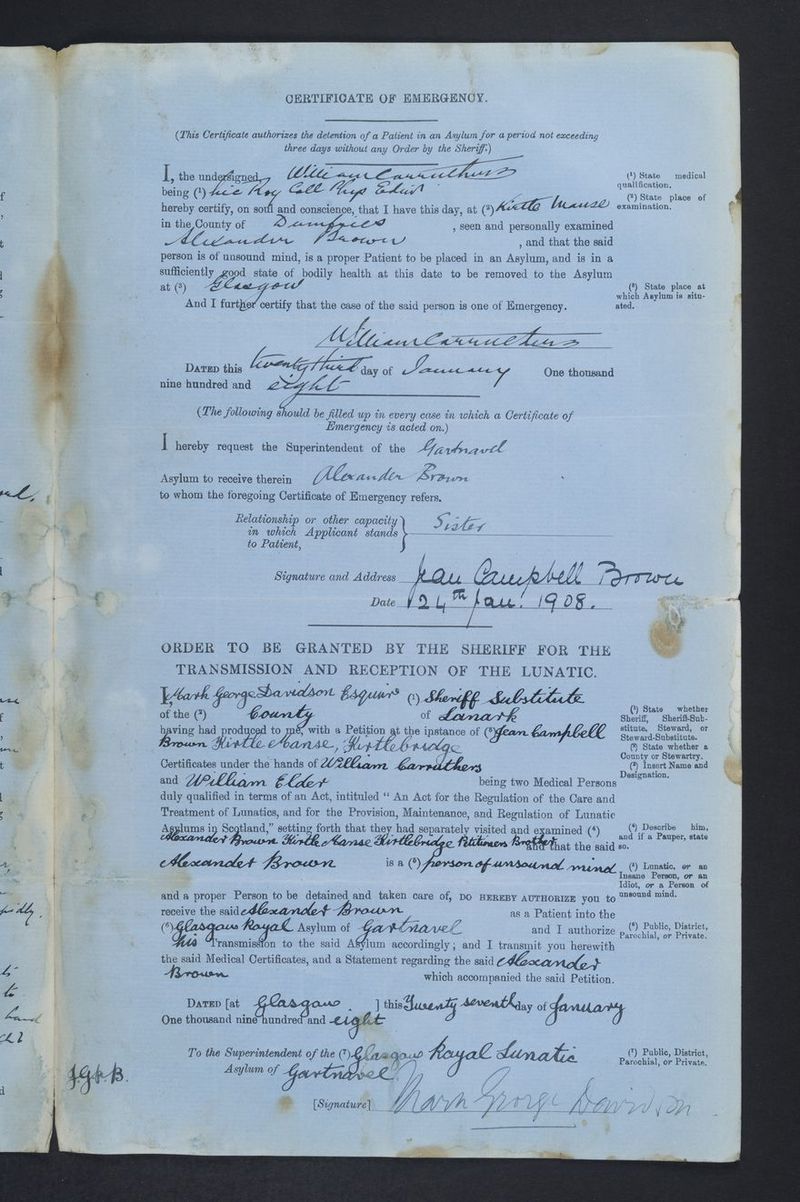 CERTIFICATE OF EMERGENCY.
(This Certificate authorizes the detention of a Patient in an Asylum for a period not exceeding
three days without any Order by the Sheriff.)
I, the undersigned, William Carruthers
being (¹) Lic Roy Coll Phys Edin
hereby certify, on soul and conscience, that I have this day, at (²) Kirtle Manse
in the County of Dumfries , seen and personally examined
Alexander Brown , and that the said
person is of unsound mind, is a proper Patient to be placed in an Asylum, and is in a
sufficiently good state of bodily health at this date to be removed to the Asylum
at (³) Glasgow
And I further certify that the case of the said person is one of Emergency.
(¹) State medical
qualification.
(²) State place of
examination.
(³) State place at
which Asylum is situ-
ated.
William Carruthers
DATED this twenty third day of January One thousand
nine hundred and eight
(The following should be filled up in every case in which a Certificate of
Emergency is acted on.)
I hereby request the Superintendent of the Gartnavel
Asylum to receive therein Alexander Brown
to whom the foregoing Certificate of Emergency refers.
Relationship or other capacity
in which Applicant stands
to Patient,
Sister
Signature and Address Jean Campbell Brown
Date 24th Jan. 1908.
ORDER TO BE GRANTED BY THE SHERIFF FOR THE
TRANSMISSION AND RECEPTION OF THE LUNATIC.
I, Mark George Davidson Esquire (¹) Sheriff Substitute
of the (²) County of Lanark
having had produced to me, with a Petition at the instance of (³) Jean Campbell
Brown Kirtle Manse, Kirtlebridge
Certificates under the hands of William Carruthers
and William Elder being two Medical Persons
duly qualified in terms of an Act, intituled “ An Act for the Regulation of the Care and
Treatment of Lunatics, and for the Provision, Maintenance, and Regulation of Lunatic
Asylums in Scotland,” setting forth that they had separately visited and examined (⁴)
Alexander Brown Kirtle Manse Kirtlebridge Petitioners Brother and that the said
Alexander Brown is a (⁵) person of unsound mind
and a proper Person to be detained and taken care of, DO HEREBY AUTHORIZE you to
receive the said Alexander Brown as a Patient into the
(⁶) Glasgow Royal Asylum of Gartnavel and I authorize
his Transmission to the said Asylum accordingly; and I transmit you herewith
the said Medical Certificates, and a Statement regarding the said Alexander
Brown which accompanied the said Petition.
(¹) State whether
Sheriff, Sheriff-Sub-
stitute, Steward, or
Steward-Substitute.
(²) State whether a
County or Stewartry.
(³) Insert Name and
Designation.
(⁴) Describe him,
and if a Pauper, state
so.
(⁵) Lunatic, or an
Insane Person, or an
Idiot, or a Person of
unsound mind.
(⁶) Public, District,
Parochial, or Private.
DATED [at Glasgow ] this Twenty seventh day of January
One thousand nine hundred and eight
To the Superintendent of the (⁷) Glasgow Royal Lunatic
Asylum of Gartnavel.
(⁷) Public, District,
Parochial, or Private.
[Signature] Mark George Davidson